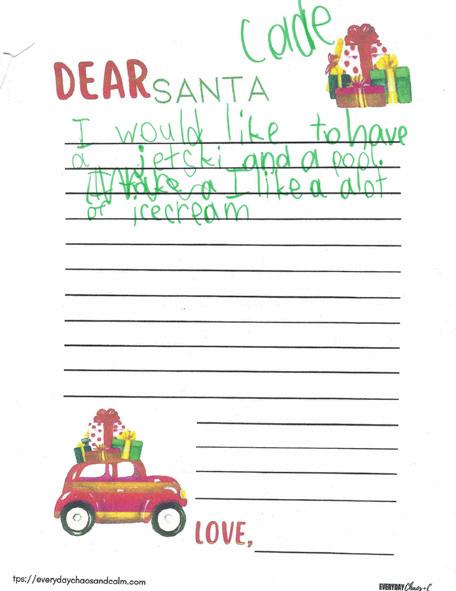 Cade
DEAR SANTA
I would like to have
a jetski and a pool.
a I like a alot
of icecream
LOVE,
tps://everydaychaosandcalm.com
EVERYDAY Chaos + C